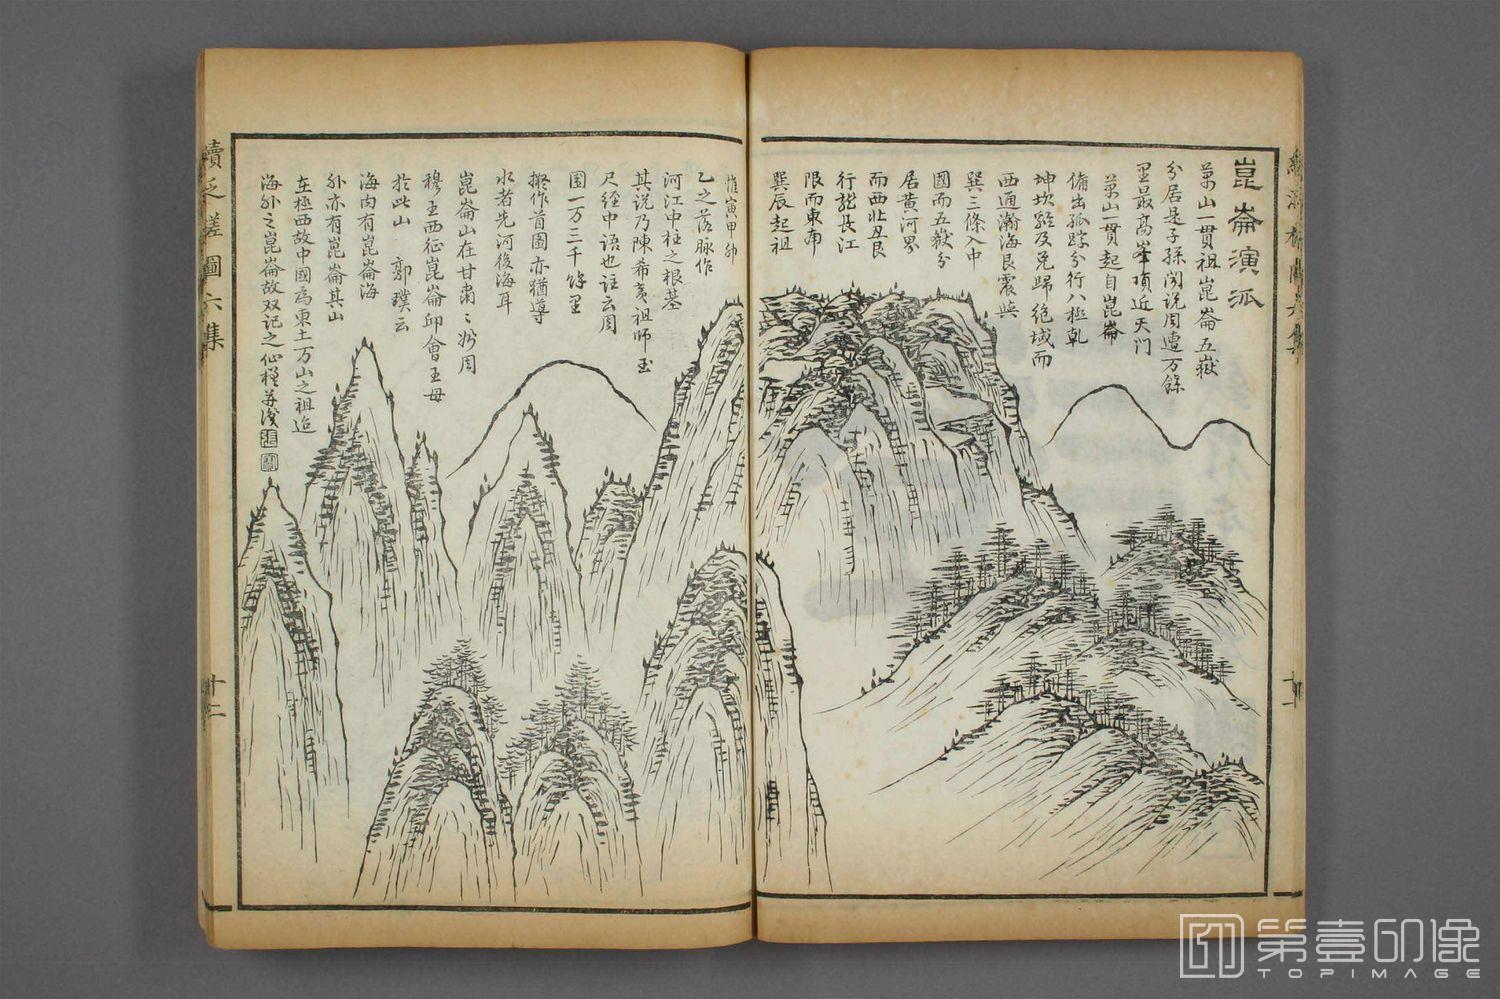 崑崙演派
萬山一貫祖崑崙五嶽
分居是子孫聞說周遭万餘
里最高峯頂近天門
萬山一貫起自崑崙
備出孤踪分行八極乾
坤坎離及兌歸絕域而
西通瀚海艮震與
巽三條入中
國而五嶽分
居黃河界
而西北丑艮
行龍長江
限而東南
巽辰起祖
惟寅甲卯
乙之落脉作
河江中柱之根基
其說乃陳希夷祖師玉
尺經中語也註云周
圍一万三千餘里
擬作首圖亦猶導
水者先河後海耳
崑崙山在甘肅
穆王西征崑崙邱會王母
於此山 郭璞云
海內有崑崙海
外亦有崑崙其山
在極西故中國為東土万山之祖
海外之崑崙故双記之仙槎
續泛槎圖六集
十二
第壹印像
TOPIMAGE